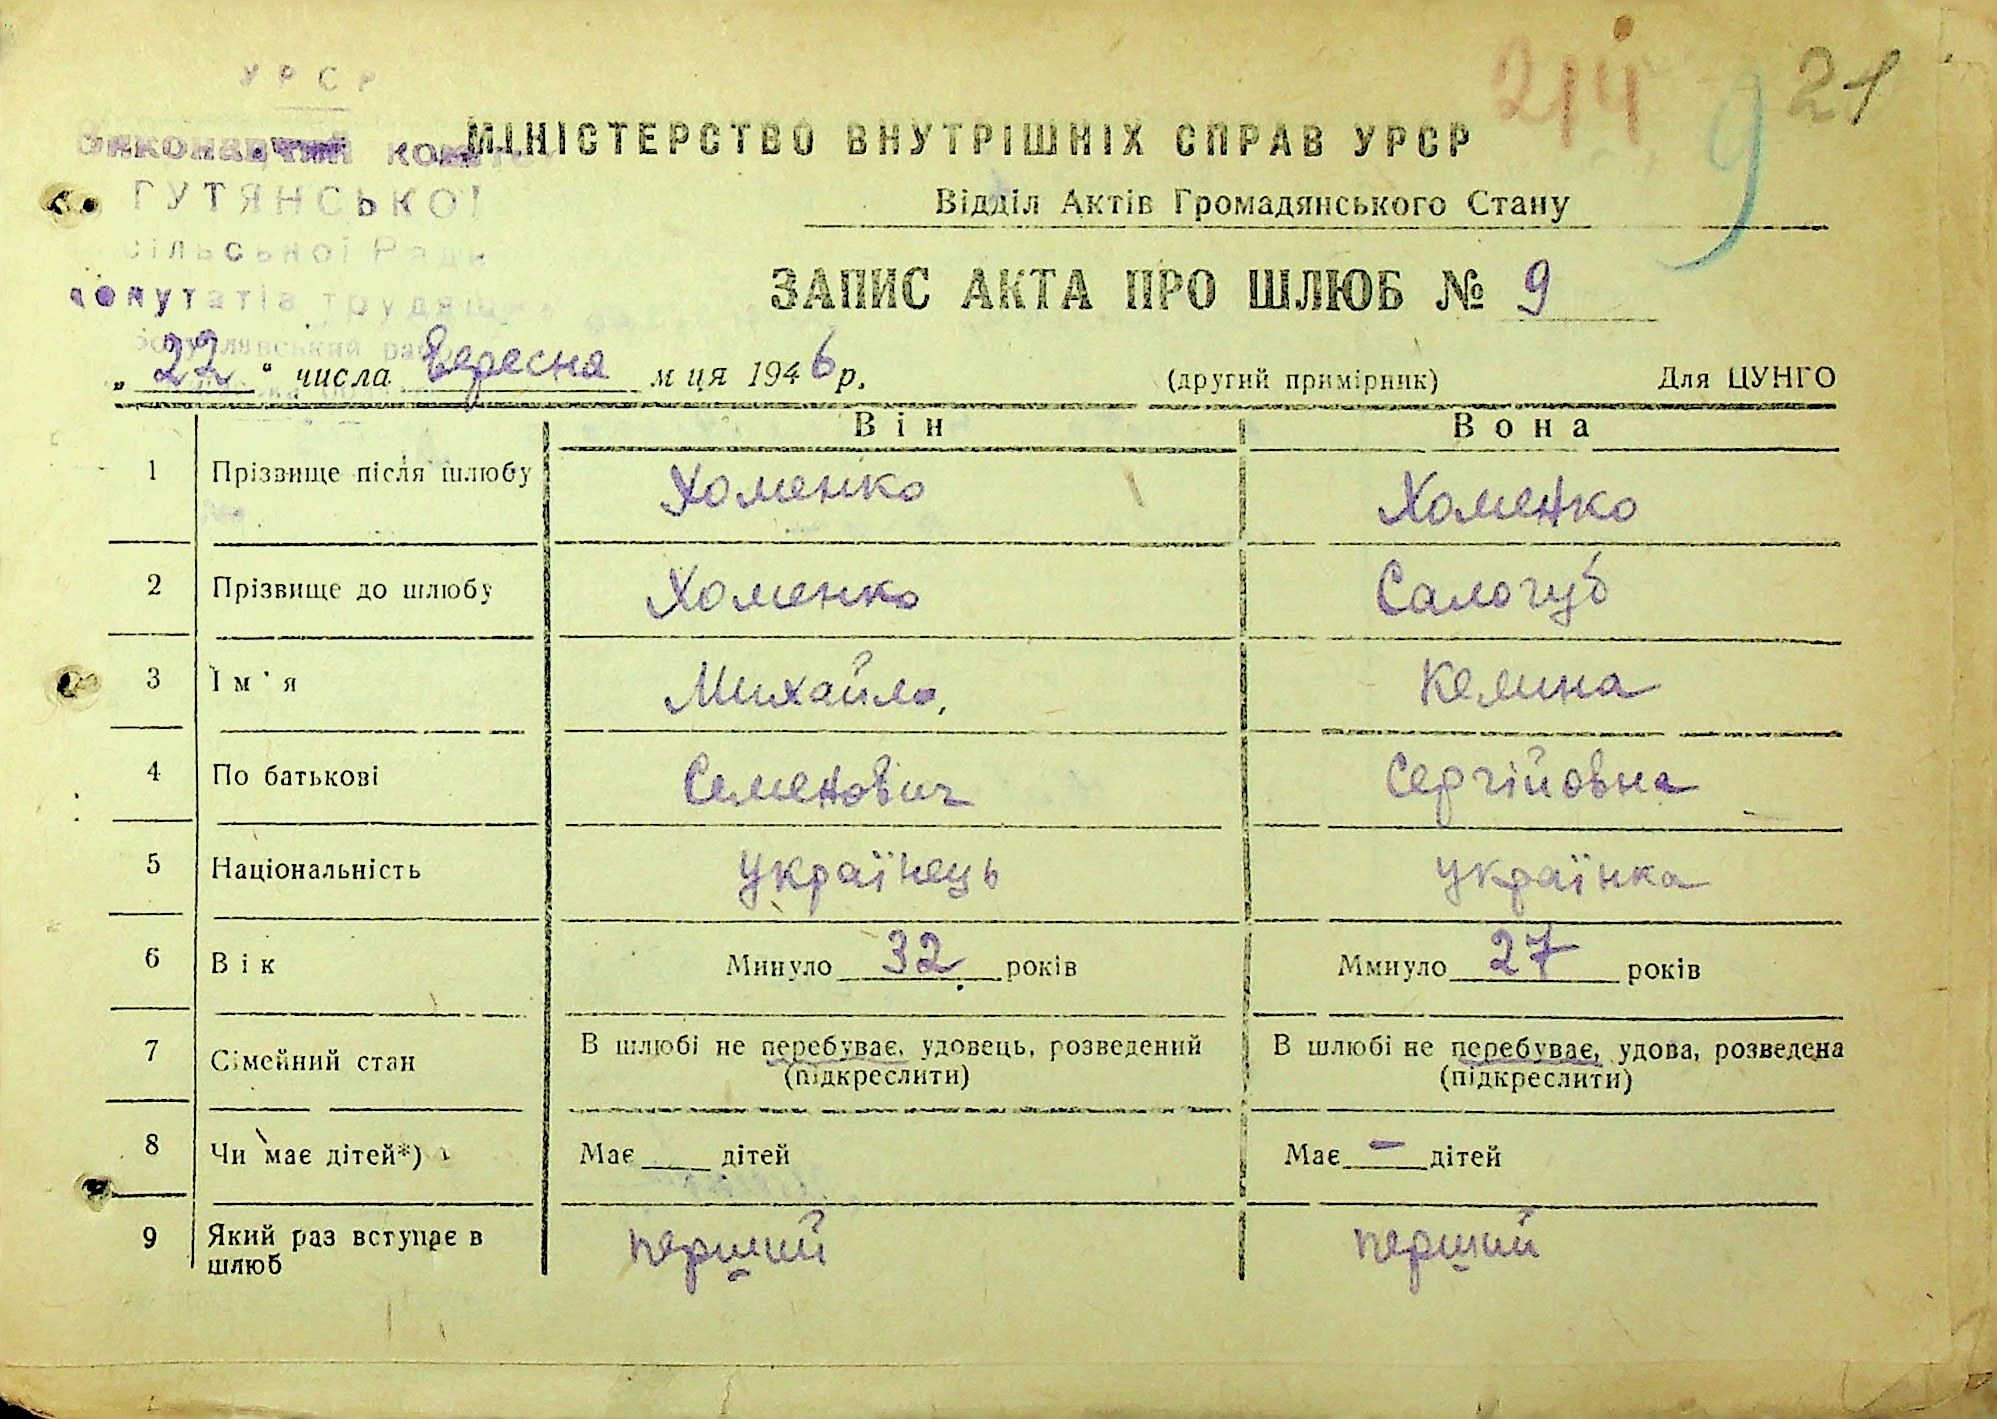 УРСР
214 9 21
Виконавчий коміт
МІНІСТЕРСТВО ВНУТРІШНІХ СПРАВ УРСР
ГУТЯНСЬКОЇ
Відділ Актів Громадянського Стану
сільської Ради
депутатів трудящих
ЗАПИС АКТА ПРО ШЛЮБ № 9
„22“ числа Вересня м ця 1946 р.
(другий примірник) Для ЦУНГО
Він Вона
1 Прізвище після шлюбу Хоменко Хоменко
2 Прізвище до шлюбу Хоменко Салогуб
3 Ім'я Михайло. Келина
4 По батькові Семенович Сергійовна
5 Національність Українець українка
6 Вік Минуло 32 років Ммнуло 27 років
7 Сімейний стан В шлюбі не перебуває, удовець, розведений В шлюбі не перебуває, удова, розведена
(підкреслити) (підкреслити)
8 Чи має дітей*) Має ____ дітей Має – дітей
9 Який раз вступає в перший перший
шлюб